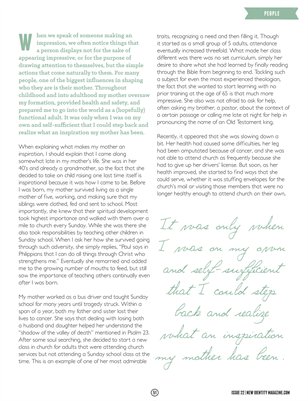 PEOPLE
When we speak of someone making an
impression, we often notice things that
a person displays not for the sake of
appearing impressive, or for the purpose of
drawing attention to themselves, but the simple
actions that come naturally to them. For many
people, one of the biggest influences in shaping
who they are is their mother. Throughout
childhood and into adulthood my mother oversaw
my formation, provided health and safety, and
prepared me to go into the world as a (hopefully)
functional adult. It was only when I was on my
own and self-sufficient that I could step back and
realize what an inspiration my mother has been.
When explaining what makes my mother an
inspiration, I should explain that I came along
somewhat late in my mother's life. She was in her
40's and already a grandmother; so the fact that she
decided to take on child raising one last time itself is
inspirational because it was how I came to be. Before
I was born, my mother survived living as a single
mother of five, working, and making sure that my
siblings were clothed, fed and sent to school. Most
importantly, she knew that their spiritual development
took highest importance and walked with them over a
mile to church every Sunday. While she was there she
also took responsibilities by teaching other children in
Sunday school. When I ask her how she survived going
through such adversity, she simply replies, "Paul says in
Philippians that I can do all things through Christ who
strengthens me." Eventually she remarried and added
me to the growing number of mouths to feed, but still
saw the importance of teaching others continually even
after I was born.
My mother worked as a bus driver and taught Sunday
school for many years until tragedy struck. Within a
span of a year, both my father and sister lost their
lives to cancer. She says that dealing with losing both
a husband and daughter helped her understand the
"shadow of the valley of death" mentioned in Psalm 23.
After some soul searching, she decided to start a new
class in church for adults that were attending church
services but not attending a Sunday school class at the
time. This is an example of one of her most admirable
traits, recognizing a need and then filling it. Though
it started as a small group of 5 adults, attendance
eventually increased threefold. What made her class
different was there was no set curriculum, simply her
desire to share what she had learned by finally reading
through the Bible from beginning to end. Tackling such
a subject for even the most experienced theologian,
the fact that she wanted to start learning with no
prior training at the age of 65 is that much more
impressive. She also was not afraid to ask for help,
often asking my brother, a pastor, about the context of
a certain passage or calling me late at night for help in
pronouncing the name of an Old Testament king.
Recently, it appeared that she was slowing down a
bit. Her health had caused some difficulties, her leg
had been amputated because of cancer, and she was
not able to attend church as frequently because she
had to give up her drivers' license. But soon, as her
health improved, she started to find ways that she
could serve, whether it was stuffing envelopes for the
church's mail or visiting those members that were no
longer healthy enough to attend church on their own.
It was only when
I was on my own
and self-sufficient
that I could step
back and realize
what an inspiration
my mother has been.
ISSUE 22 | NEW IDENTITY MAGAZINE.COM